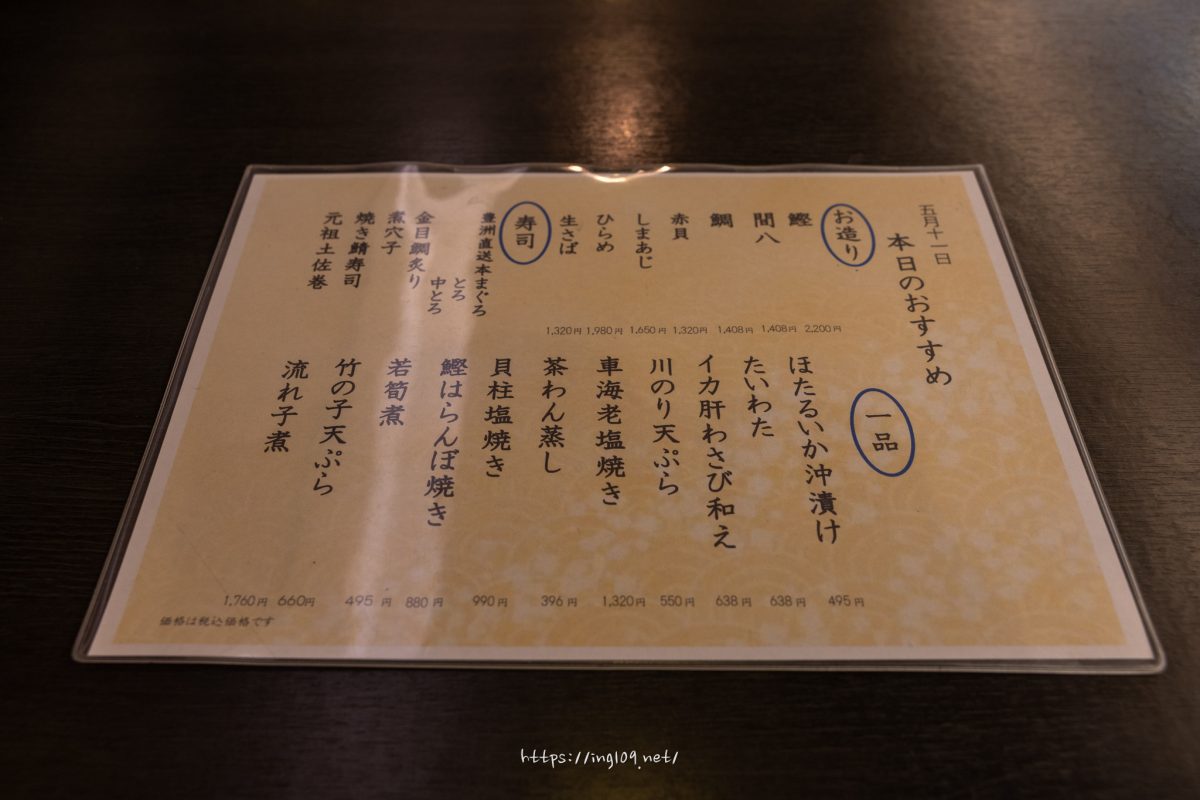 五月十一日
本日のおすすめ
お造り
鰹 2,200円
間八 1,408円
鯛 1,408円
赤貝 1,320円
しまあじ 1,650円
ひらめ 1,980円
生さば 1,320円
寿司
豊洲直送本まぐろ
とろ
中とろ
金目鯛炙り
煮穴子
焼き鯖寿司
元祖土佐巻
一品
ほたるいか沖漬け 495円
たいわた 638円
イカ肝わさび和え 638円
川のり天ぷら 550円
車海老塩焼き 1,320円
茶わん蒸し 396円
貝柱塩焼き 990円
鰹はらんぼ焼き 880円
若筍煮 495円
竹の子天ぷら 660円
流れ子煮 1,760円
価格は税込価格です
https://ing109.net/